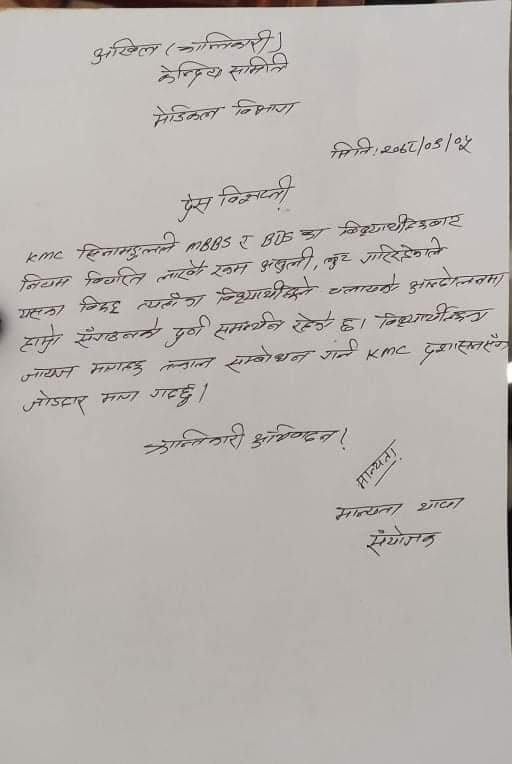 अखिल (क्रान्तिकारी)
केन्द्रिय समिति
मेडिकल विभाग
मिति: २०७८/०९/०५
प्रेस विज्ञप्ती
KMC सिनामङ्गलले MBBS र BDS का विद्यार्थीहरुबाट
नियम विपरित लाखौ रकम असुली, लुट गरिरहेकाले
यसका विरुद्ध त्यहाँका विद्यार्थीहरुले चलाएको आन्दोलनमा
हाम्रो संगठनको पुर्ण समर्थन रहेको छ। विद्यार्थीहरुका
जायज मागहरु तत्काल सम्बोधन गर्न KMC प्रशासनसँग
जोडदार माग गर्दछु।
क्रान्तिकारी अभिवादन!
मान्यता
मान्यता थापा
संयोजक